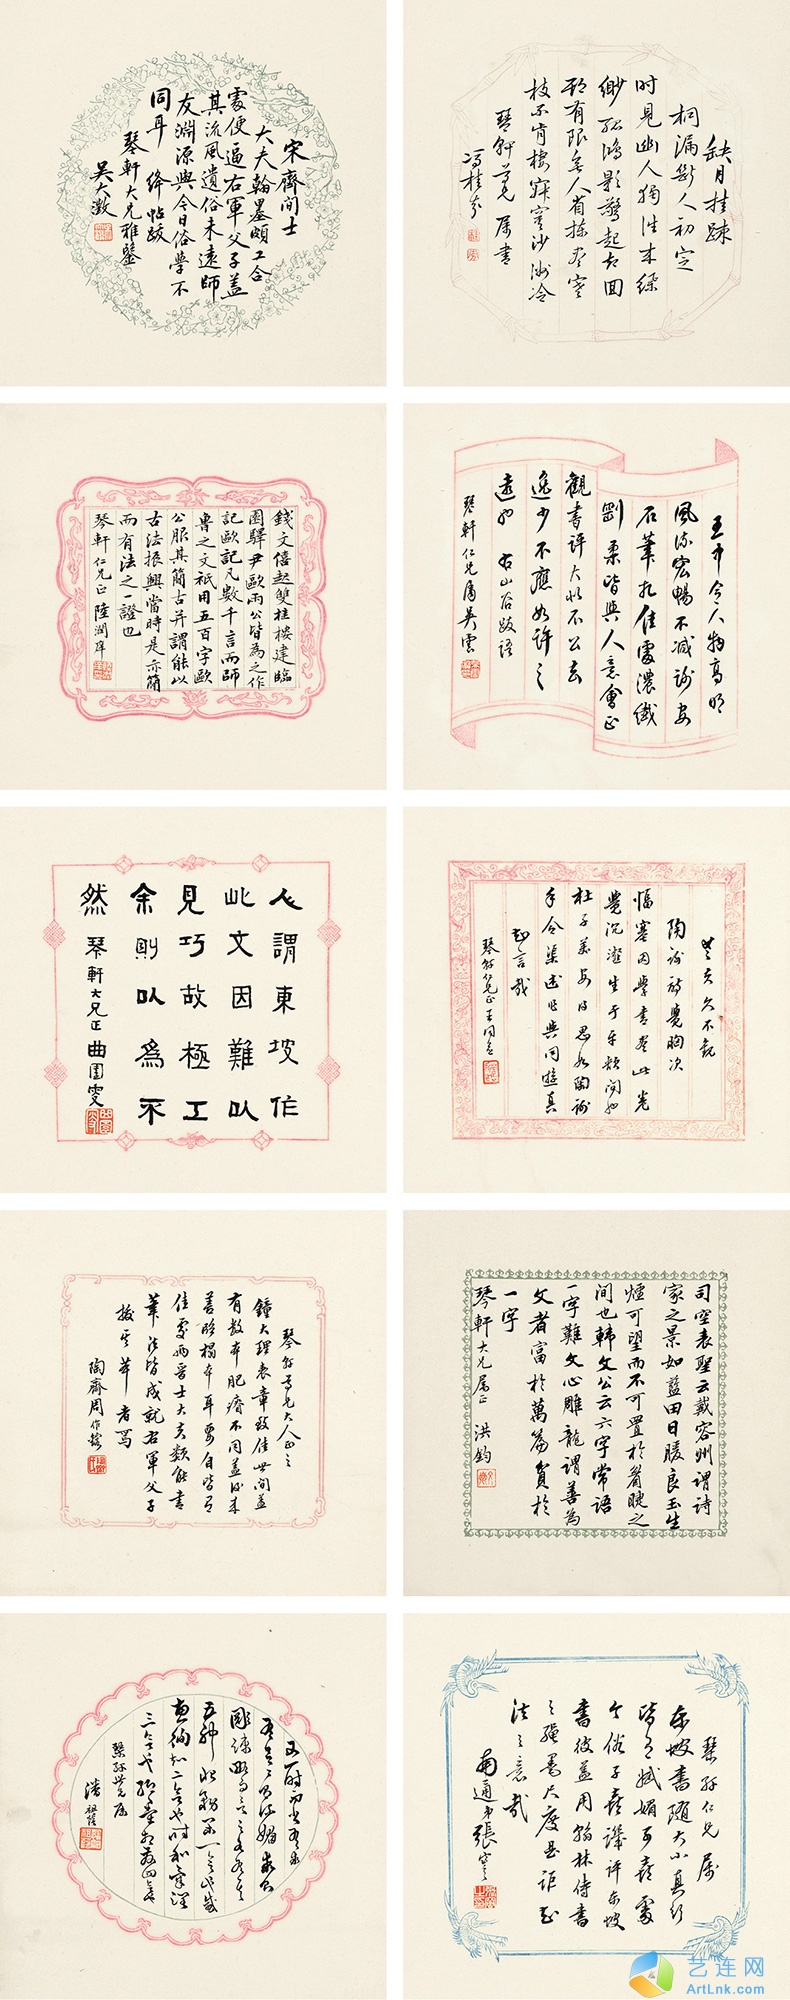 宋齊間士
大夫翰墨頗工合
處便逼右軍父子蓋
其流風遺俗未遠師
友淵源與今日俗學不
同耳 絳帖跋
琴軒大兄雅鑒
吳大澂
缺月挂疎
桐漏斷人初定
時見幽人獨往來縹
緲孤鴻影驚起却回
頭有恨無人省揀盡寒
枝不肯棲寂寞沙洲冷
琴軒尊兄屬書
馮桂芬
錢文僖起雙桂樓建臨
園驛尹歐兩公皆為之作
記歐記凡數千言而師
魯之文祇用五百字歐
公服其簡古并謂能以
古法振興當時是亦簡
而有法之一證也
琴軒仁兄正 陸潤庠
王中令人物高明
風流宏暢不減謝安
石筆札佳處濃纖
剛柔皆與人意會正
觀書評大似不公去
逸少不應如許之
遠也 右山谷跋語
琴軒仁兄屬 吳雲
人謂東坡作
此文因難以
見巧故極工
余則以為不
然 琴軒大兄正 曲園叟
老夫久不觀
陶謝詩覺胸次
愊塞因學書盡此卷
覺沆瀣生于牙頰間也
杜子美安得思如陶謝
手令渠述作與同遊真
知言哉
琴軒仁兄正 王同愈
琴軒尊兄大人正之
鐘大理表章致佳世間蓋
有數本肥瘠不同蓋後來
善臨搨本耳要自皆有
佳處兩晉士大夫類能書
筆法皆成就右軍父子
拔其萃者焉
陶齋周作鎔
司空表聖云戴容州謂詩
家之景如藍田日暖良玉生
煙可望而不可置於眉睫之
間也韓文公云六字常語
一字難文心雕龍謂善為
文者富於萬篇貧於
一字
琴軒大兄屬正 洪鈞
琴軒世兄屬
潘祖蔭
琴軒仁兄屬
東坡書隨大小真行
皆有嫵媚可喜處
今俗子喜譏評東坡
書彼蓋用翰林侍書
之繩墨尺度是詎知
法之意哉
南通弟張謇
艺连网
ArtLnk.com